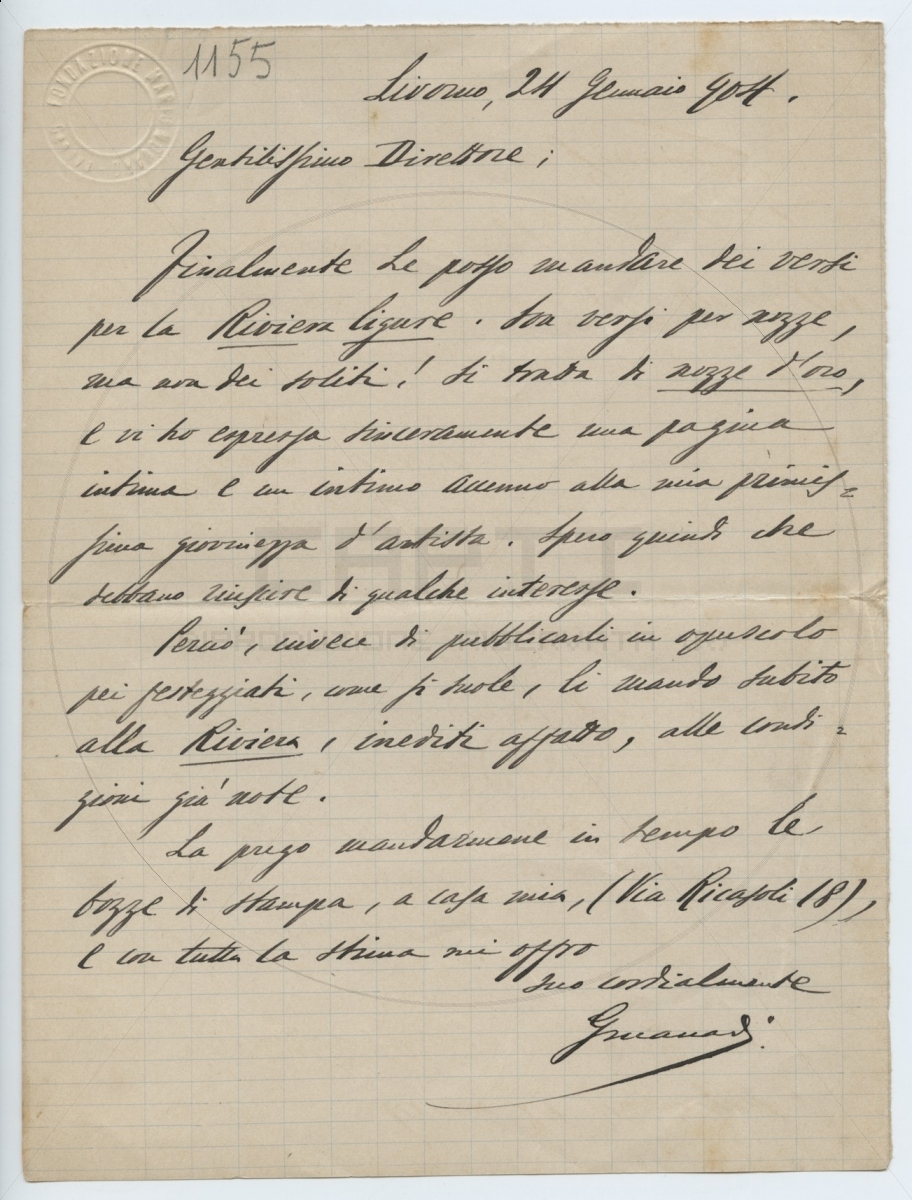 1155
Livorno, 24 Gennaio 904.
Gentilissimo Direttore;
Finalmente Le posso mandare dei versi
per la Riviera Ligure. Son versi per nozze,
ma non dei soliti! Si tratta di nozze d'oro,
e vi ho espressa sinceramente una pagina
intima e un intimo accenno alla mia primis=
sima giovinezza d'artista. Spero quindi che
debbano riuscire di qualche interesse.
Perciò, invece di pubblicarli in opuscolo
pei festeggiati, come si suole, li mando subito
alla Riviera, inediti affatto, alle condi=
zioni già note.
La prego mandarmene in tempo le
bozze di stampa, a casa mia, (Via Ricasoli 18),
e con tutta la stima mi offro
suo cordialmente